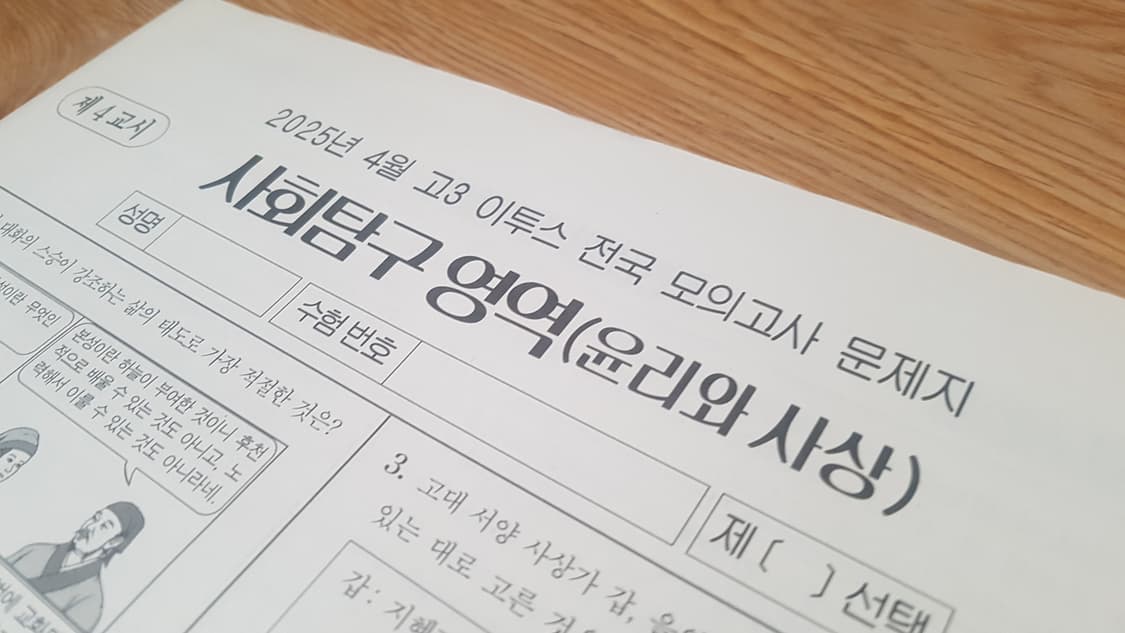 제 4 교시
2025년 4월 고3 이투스 전국 모의고사 문제지
사회탐구 영역(윤리와 사상)
성명
수험 번호
제 [ ] 선택
대화의 스승이 강조하는 삶의 태도로 가장 적절한 것은?
무엇인
본성이란 하늘이 부여한 것이니 후천
적으로 배울 수 있는 것도 아니고, 노
력해서 이룰 수 있는 것도 아니라네.
3. 고대 서양 사상가 갑, 을
있는 대로 고른 것
갑: 지혜